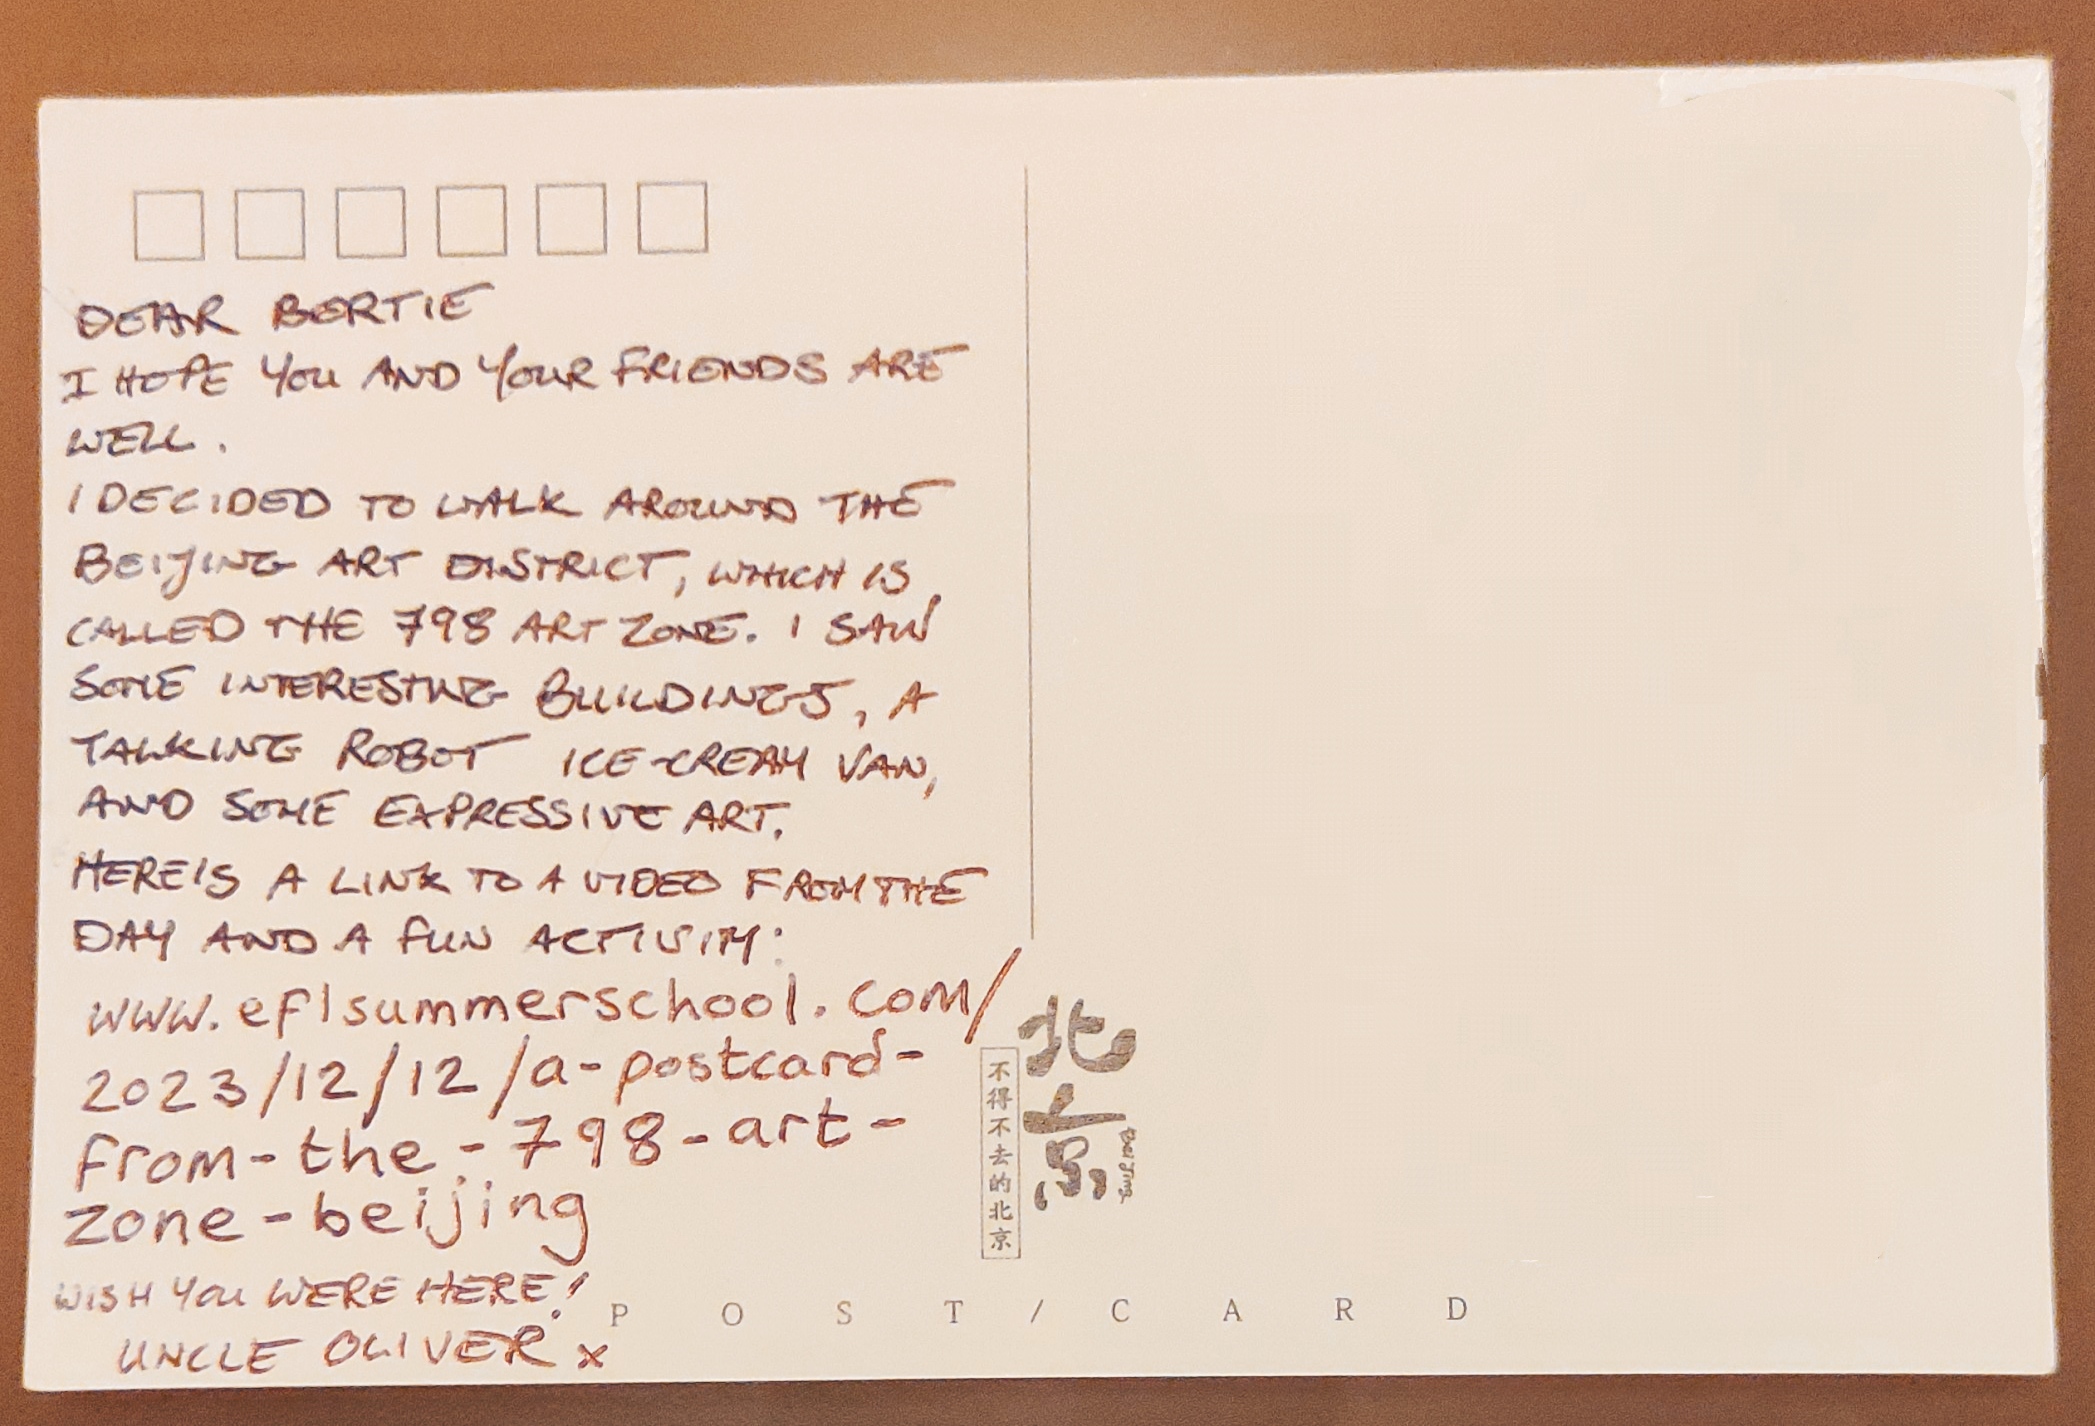 DEAR BERTIE
I HOPE YOU AND YOUR FRIENDS ARE
WELL.
I DECIDED TO WALK AROUND THE
BEIJING ART DISTRICT, WHICH IS
CALLED THE 798 ART ZONE. I SAW
SOME INTERESTING BUILDINGS, A
TALKING ROBOT ICE-CREAM VAN,
AND SOME EXPRESSIVE ART.
HERE'S A LINK TO A VIDEO FROM THE
DAY AND A FUN ACTIVITY:
www.eflsummerschool.com/
2023/12/12/a-postcard-
from-the-798-art-
zone-beijing
WISH YOU WERE HERE!
UNCLE OLIVER x
北京
BeiJing
不得不去的北京
POST/CARD